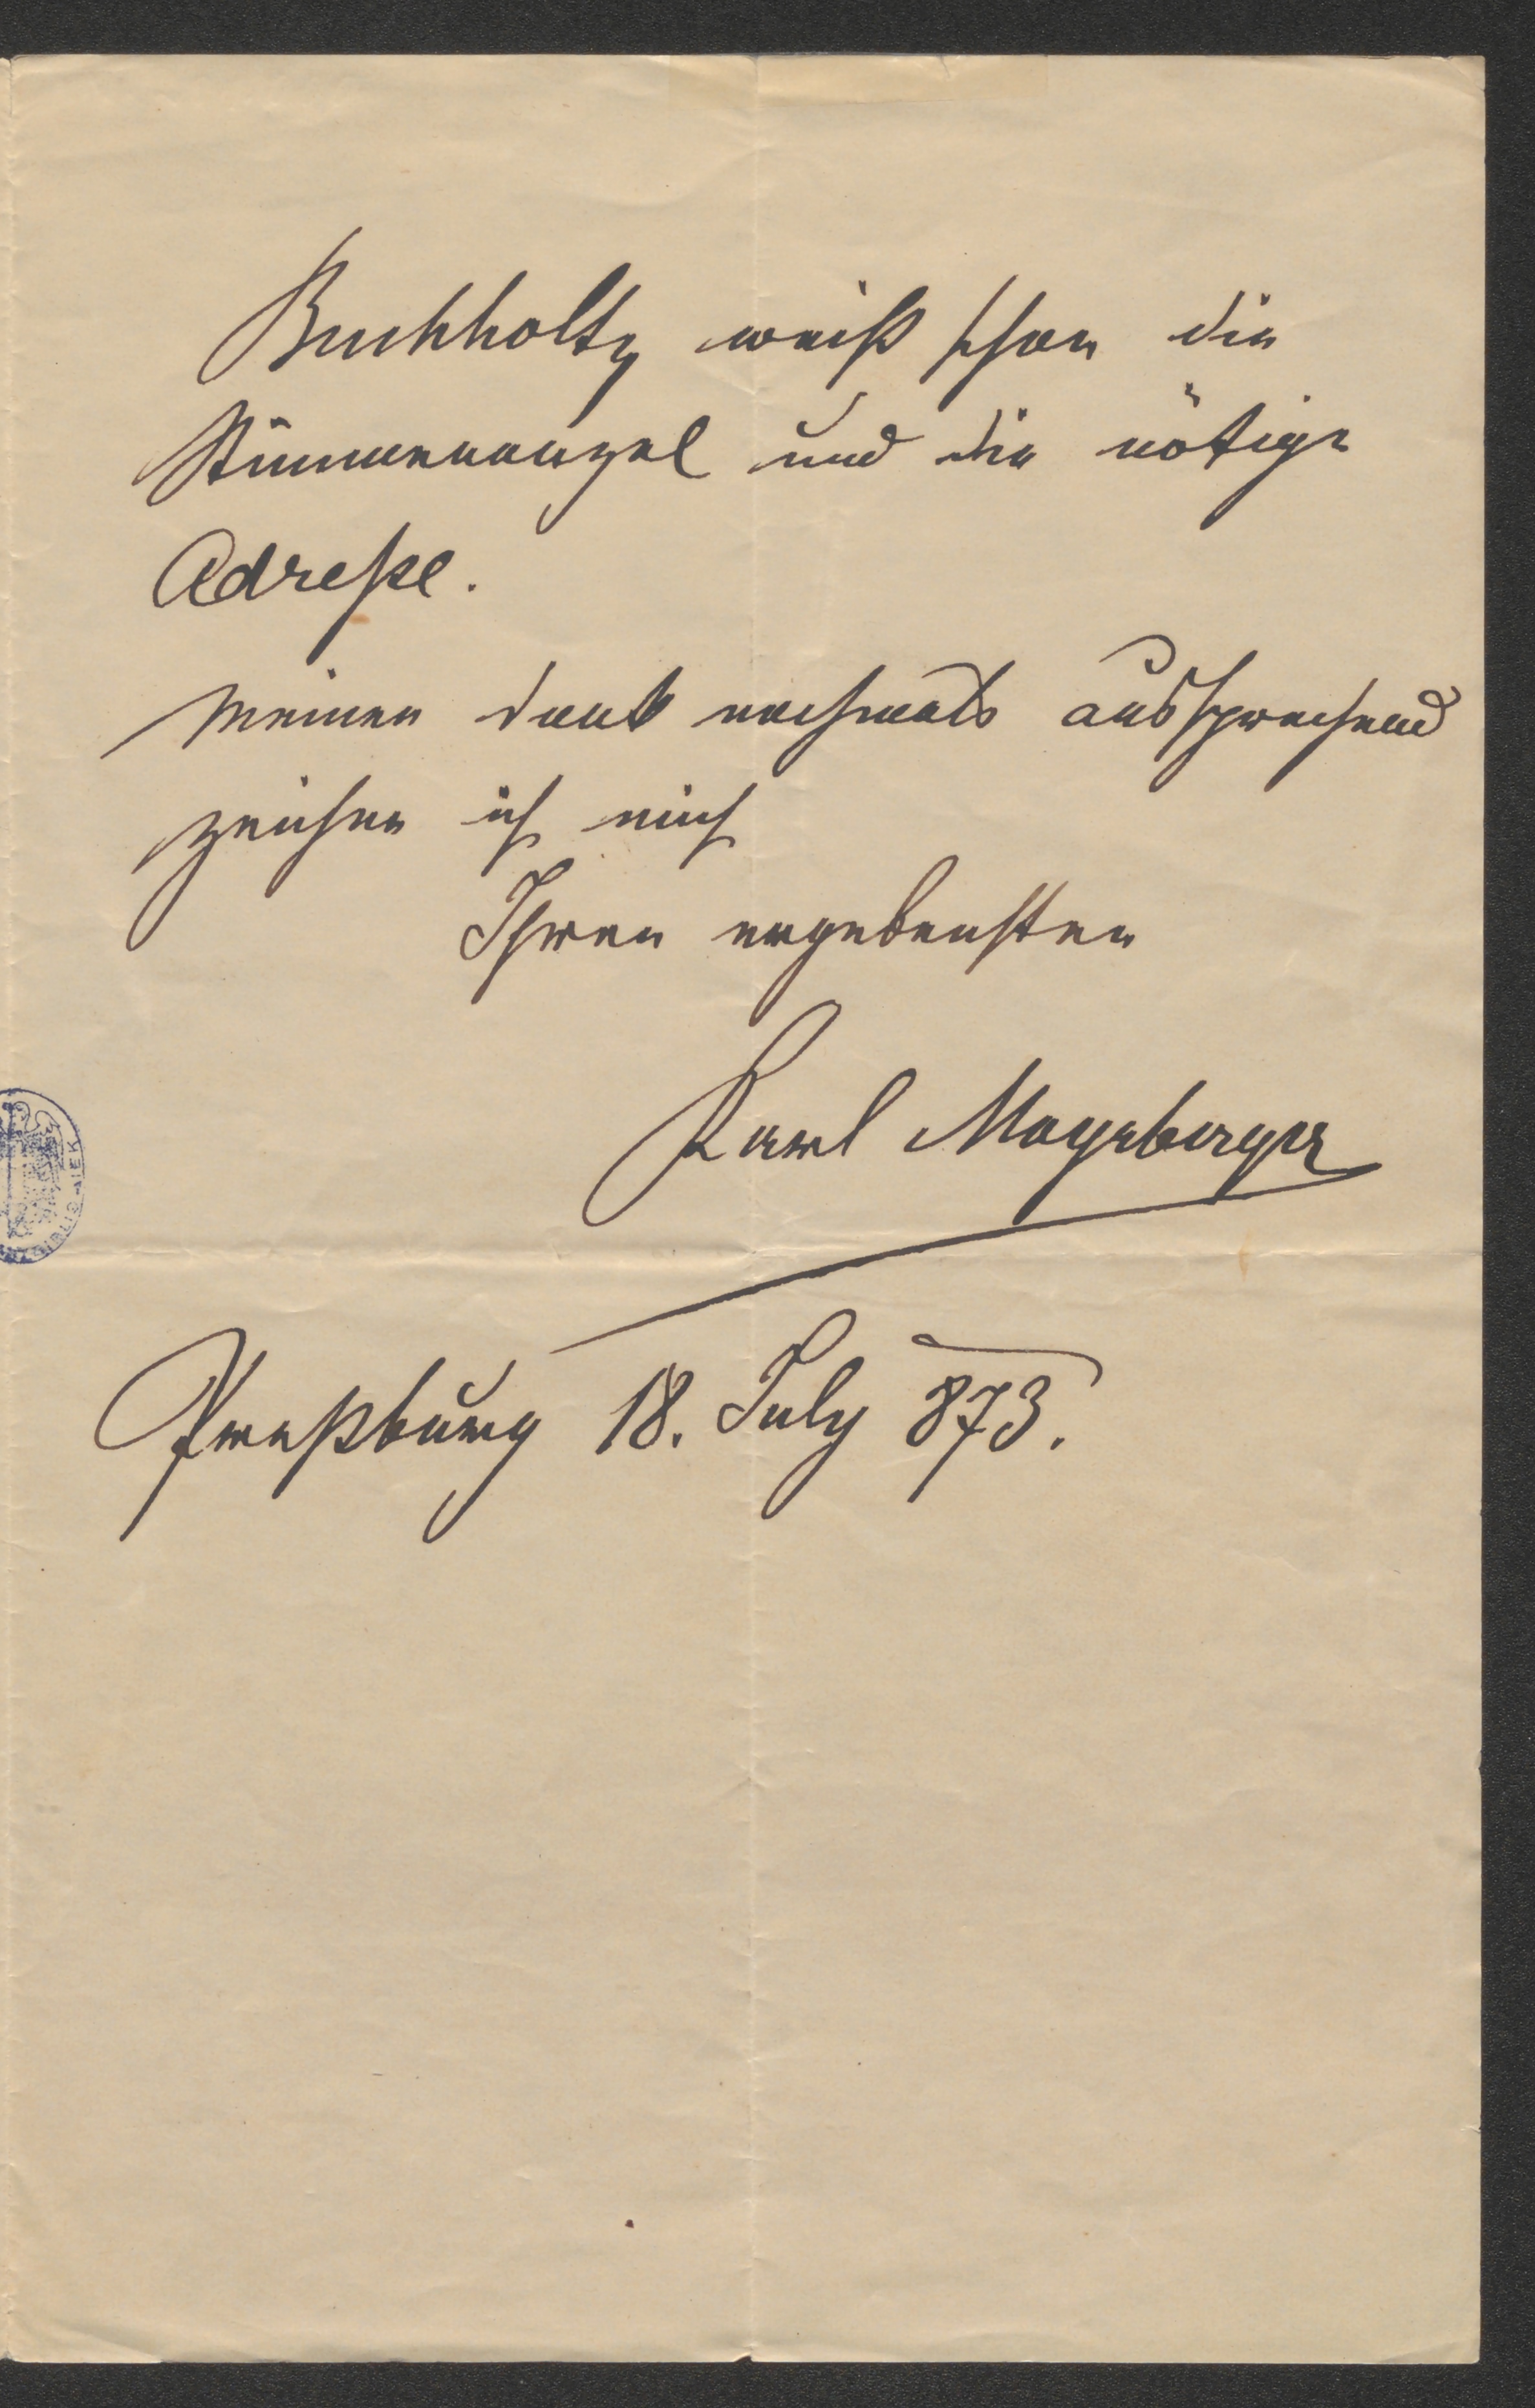 Buchholtz weiß schon die
Stimmenanzal und die nötige
Adreße.
Meinen Dank nochmals aussprechend
zeichne ich mich
Ihren ergebensten
Karl Mayrberger
Preßburg 18. July 873.